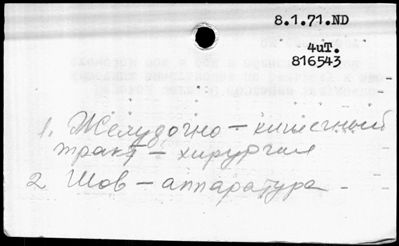 8.1.71.ND
4иТ.
816543
1. Желудочно – кишечный
тракт – хирургия
2 Шов – аппаратура –